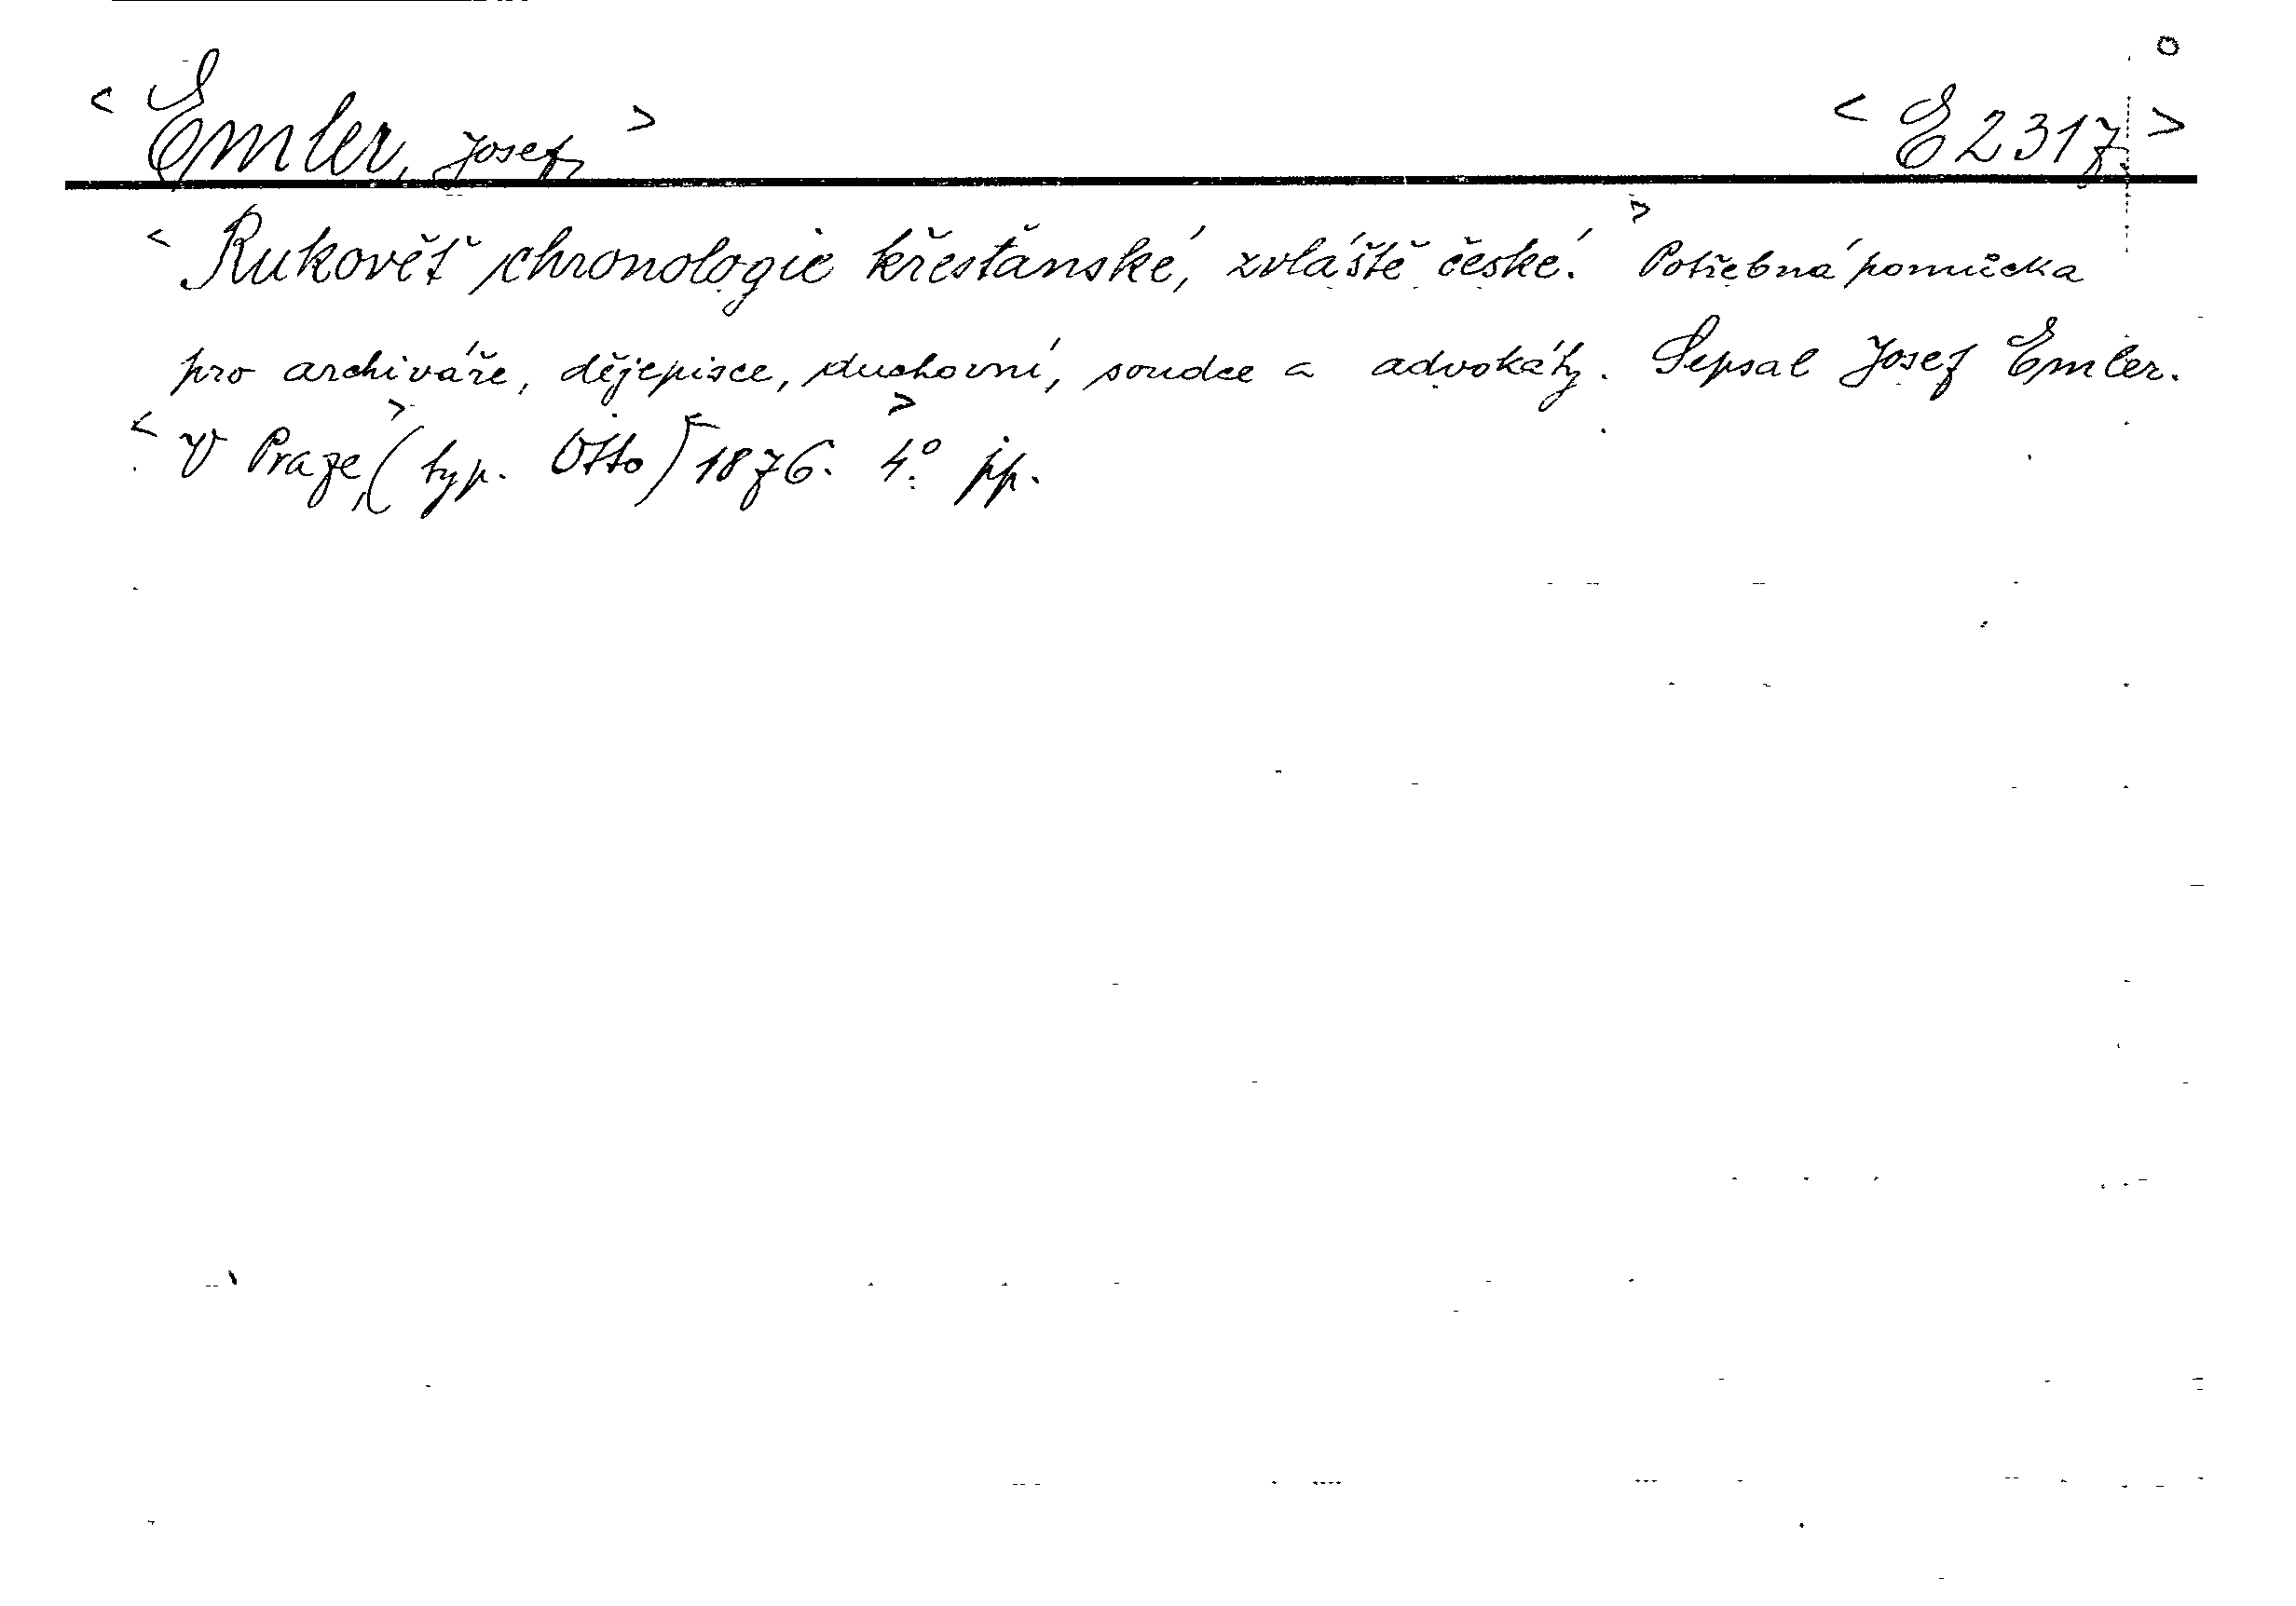 < Emler, Josef, > < E 2317. >
< Rukověť chronologie křesťanské, zvláště české. > Potřebná pomůcka
pro archiváře, dějepisce, duchovní, soudce a advokáty. Sepsal Josef Emler.
< V Praze, > ( typ. Otto ) < 1876. 4.° > pp.